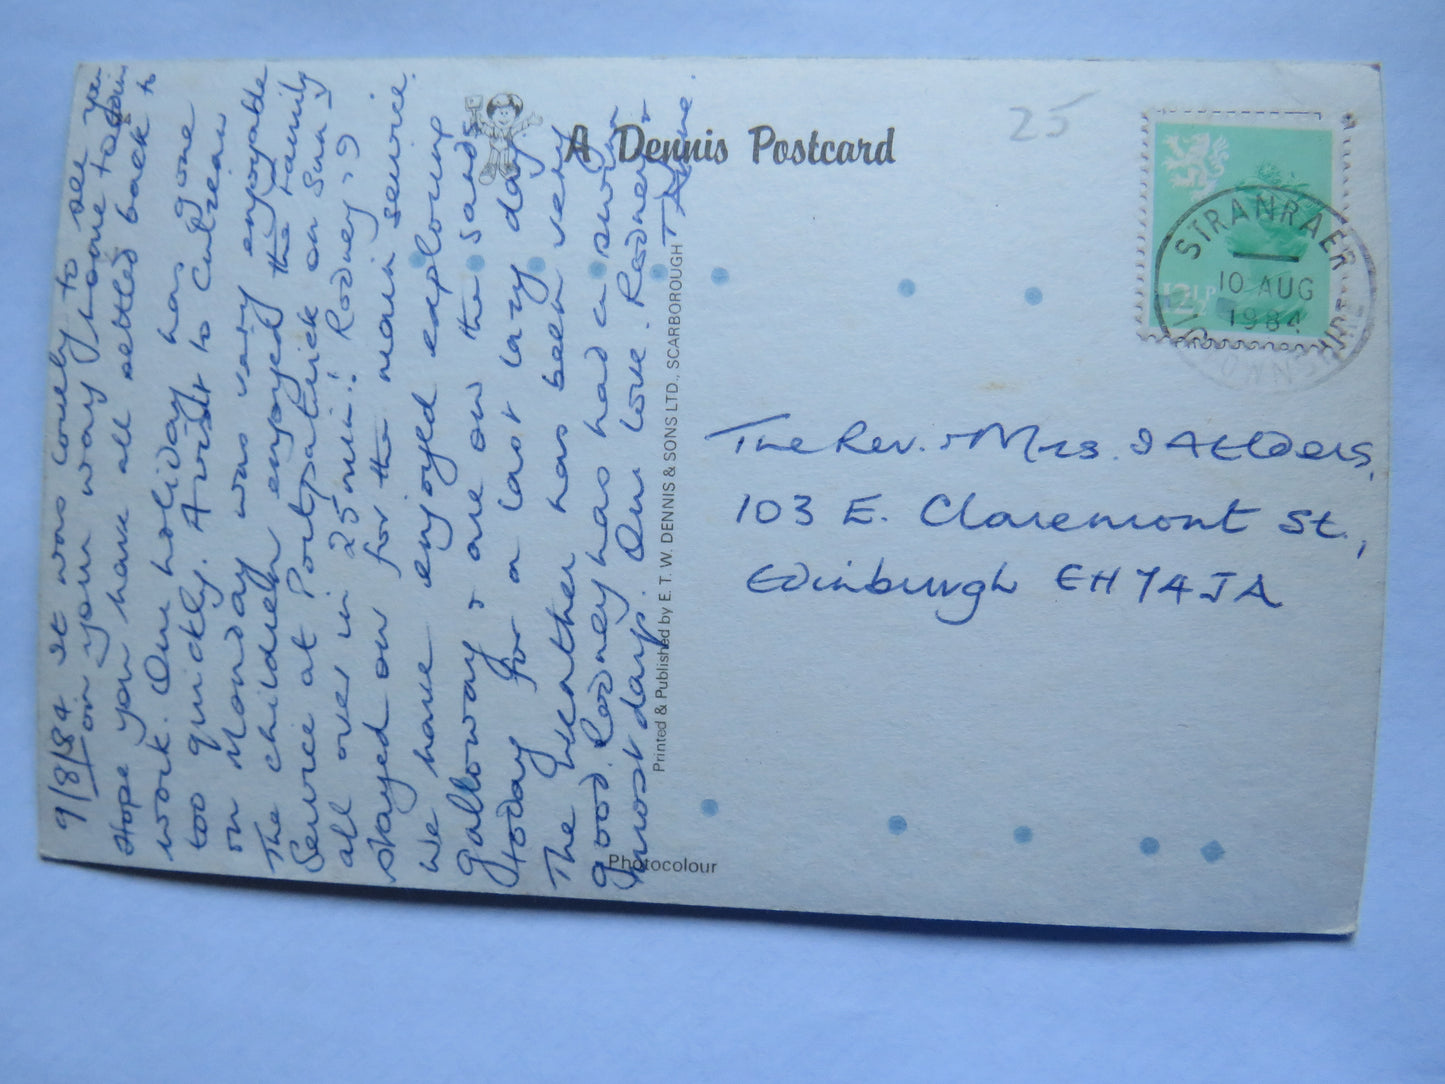 9/8/84 It was lovely to see you
on your way home to Dennis
Hope you have all settled back to
work. Our holiday has gone
too quickly. A visit to Culzean
on Monday was very enjoyable
The children enjoyed the Family
Service at Portpatrick on Sunday
all over in 25 min.! Rodney & I
stayed on for the main service.
We have enjoyed exploring
Galloway & are on the sands
today for a last lazy day.
The weather has been very
good. Rodney has had a swim
most days. Our love. Rodney &
A Dennis Postcard
25
STRANRAER
10 AUG
1984
12½P
The Rev. & Mrs.
103 E. Claremont St.,
Edinburgh EH7 4JA
Printed & Published by E. T. W. DENNIS & SONS LTD., SCARBOROUGH
Photocolour